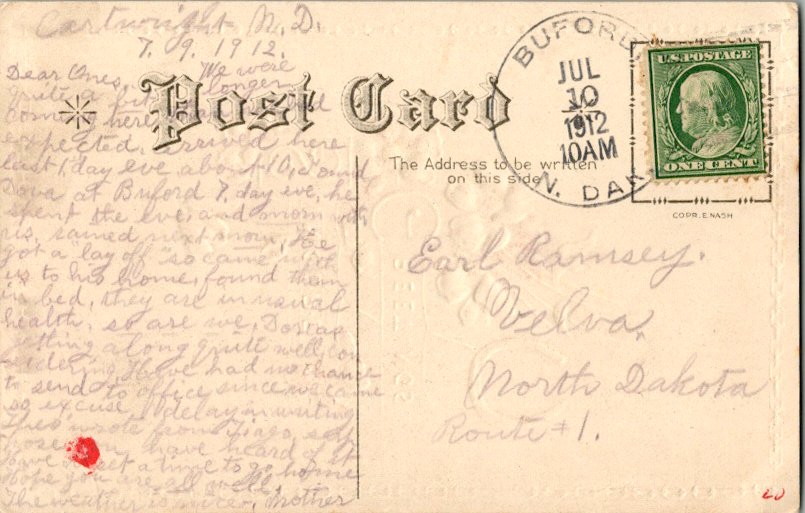 Cartwright N.D.
7. 9. 1912.
Dear Ones, We were
quite a bit longer
coming here than
expected, arrived here
last 1, day eve about 10, found
Dova at Buford 7, day eve, he
spent the eve, and morn with
us, rained next morn, He
got a "lay off" so came with
us to his home, found them
in bed, they are in usual
health, so are we,
getting along quite well, con-
sidering, Have had no chance
to send to office since we came
so excuse delay in writing
wrote from
have heard of it
Have not set a time to go home
Hope you are all well,
The weather is nice, Mother
Post Card
The Address to be written
on this side
BUFORD
JUL
10
1912
10AM
N. DAK
U.S. POSTAGE
ONE CENT
COPR. E. NASH
Earl Ramsey.
Velva,
North Dakota
Route #1.
20